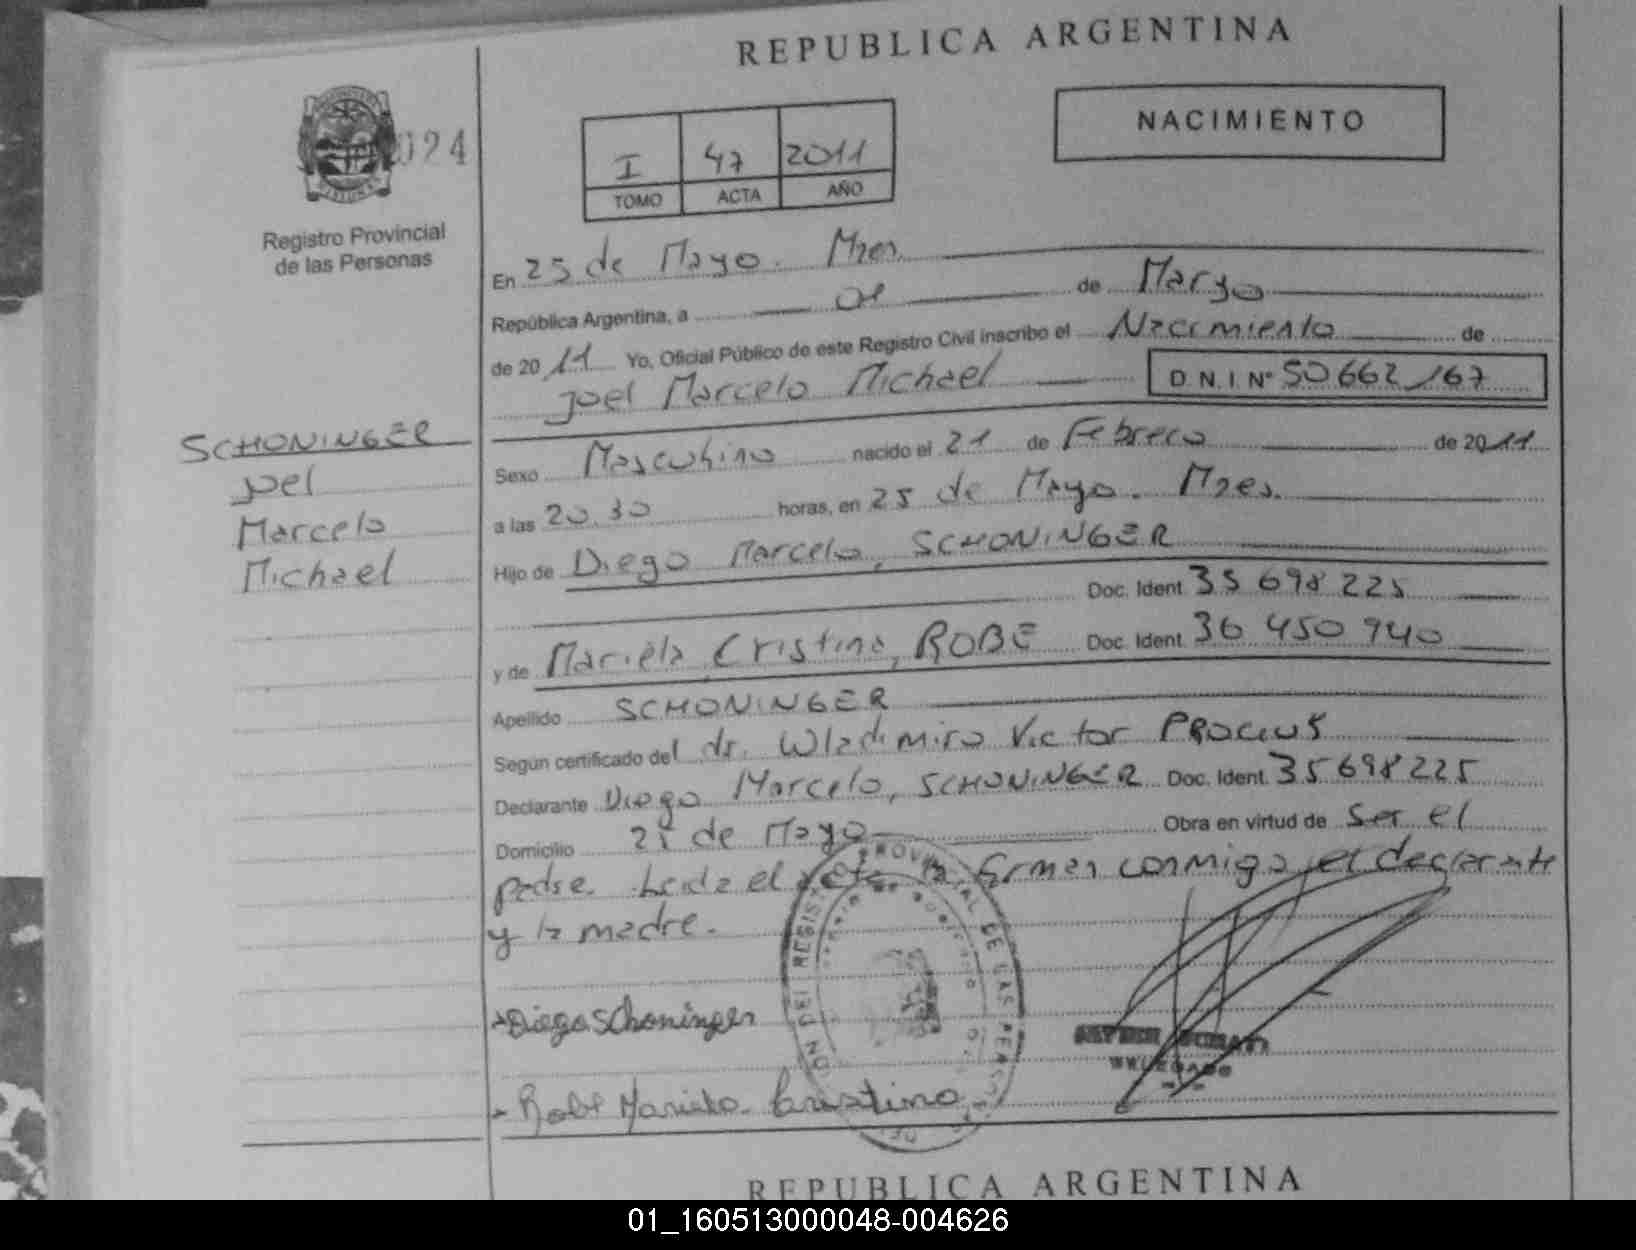 REPUBLICA ARGENTINA
024
NACIMIENTO
I 47 2011
TOMO ACTA AÑO
Registro Provincial
de las Personas
En 25 de Mayo. Mnes.
República Argentina, a 01 de Marzo
de 2011 Yo, Oficial Público de este Registro Civil inscribo el Nacimiento de
Joel Marcelo Michael D.N.I Nº 50662167
SCHONINGER
Joel
Marcelo
Michael
Sexo Masculino nacido el 21 de Febrero de 2011
a las 20.30 horas, en 25 de Mayo. Mnes.
Hijo de Diego Marcelo, SCHONINGER
Doc. Ident. 35698225
y de Mariela Cristina, ROBE Doc. Ident. 36450940
Apellido SCHONINGER
Según certificado del dr. Wladimiro Victor
Declarante Diego Marcelo, SCHONINGER Doc. Ident. 35698225
Domicilio 25 de Mayo Obra en virtud de ser el
padre. Leida el acta la firman conmigo el declarante
y la madre.
Diego Schoninger
Robe Mariela Cristina
REGISTRO PROVINCIAL DE LAS PERSONAS
DELEGADO
REPUBLICA ARGENTINA
01_160513000048-004626